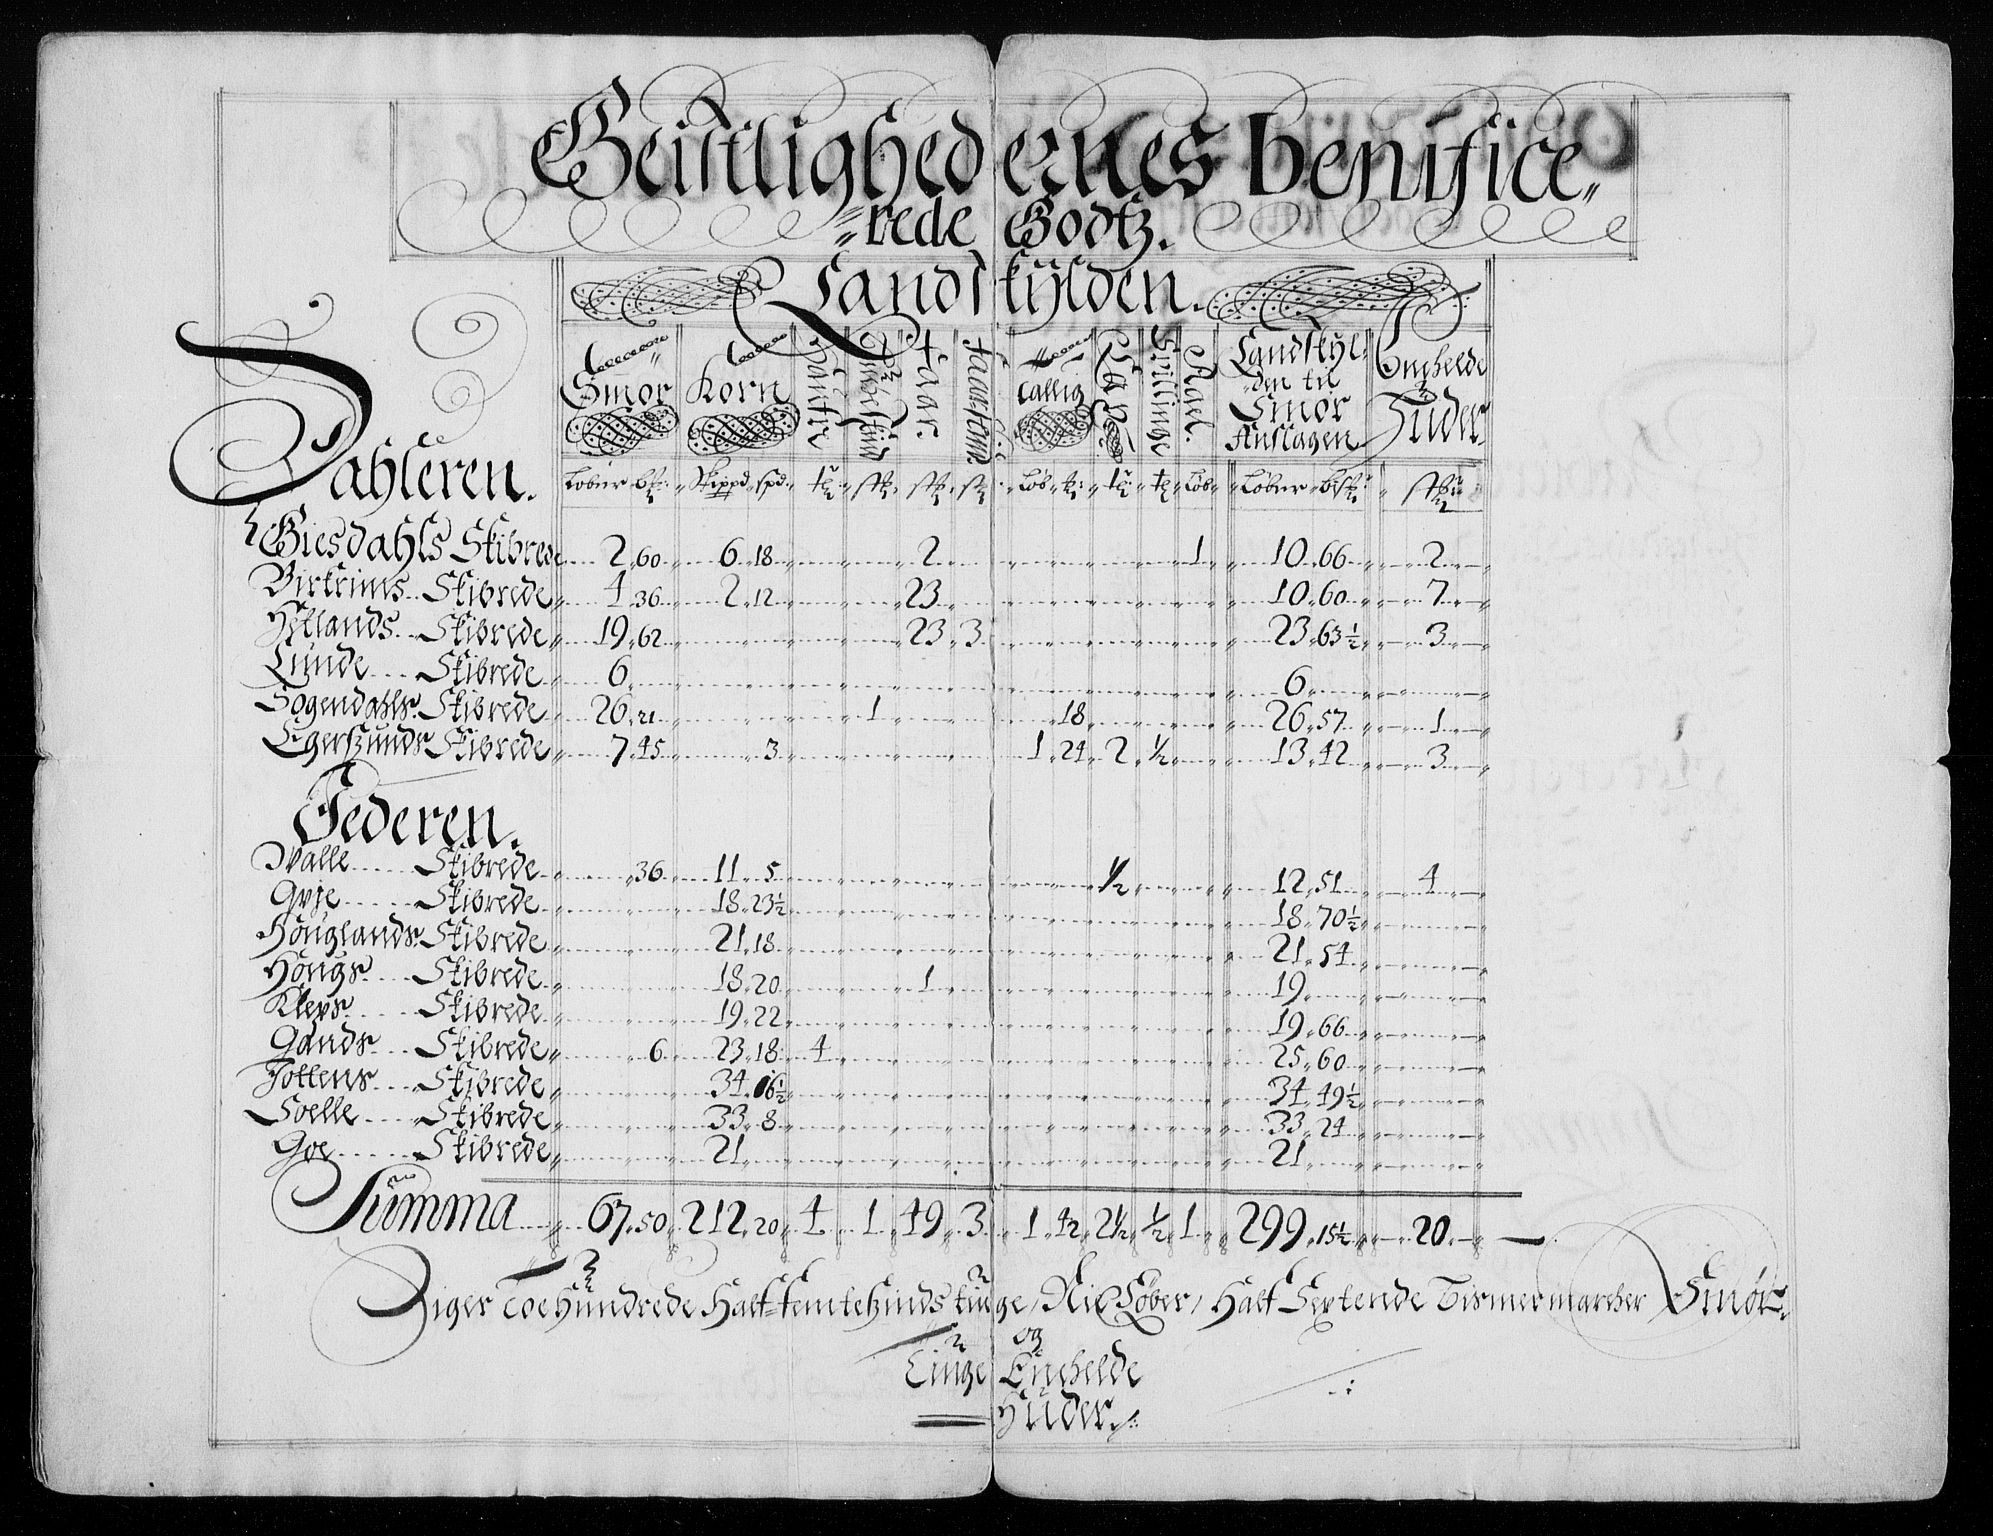 Geistlighedernes benifice„
„rede Godtz.
Landskÿlden.
Smör Korn Faar. Tallig Landskÿl„ Enchelde
den til
Smör Huder
Anslagen
Dahleren.
Löber Skippd spd. Löb Löb Löber
Giesdahls Skibrede 2. 60 6. 18 2 1 10. 66 2
Birkrims Skibrede 4. 36 2. 12 23 10. 60 7
Hetlands Skibrede 19. 62 23. 3 23. 63½ 3
Lunde Skibrede 6 6
Sogendahls Skibrede 26. 21 1 18 26. 57 1
Egersunds Skibrede 7. 45 3 1. 24 2 ½ 13. 42 3
Jederen.
Walle Skibrede 36 11. 5 ½ 12. 51 4
Gvje Skibrede 18. 23½ 18. 70½
Höuglands Skibrede 21. 18 21. 54
Höugs Skibrede 18. 20 1 19
Kleps Skibrede 19. 22 19. 66
Gands Skibrede 6 23. 18 4 25. 60
Jottens Skibrede 34. 16½ 34. 49½
Soelle Skibrede 33. 8 33. 24
Goe Skibrede 21 21
Summa 67. 50 212. 20 4 1 49 3 1. 42 2½ ½ 1 299. 15½ 20
Siger Toehundrede Half-femtesindstiuge, Nie Löber, Half Sextende Bismermarcher Smör
og
Tiuge Enchelde
Huder